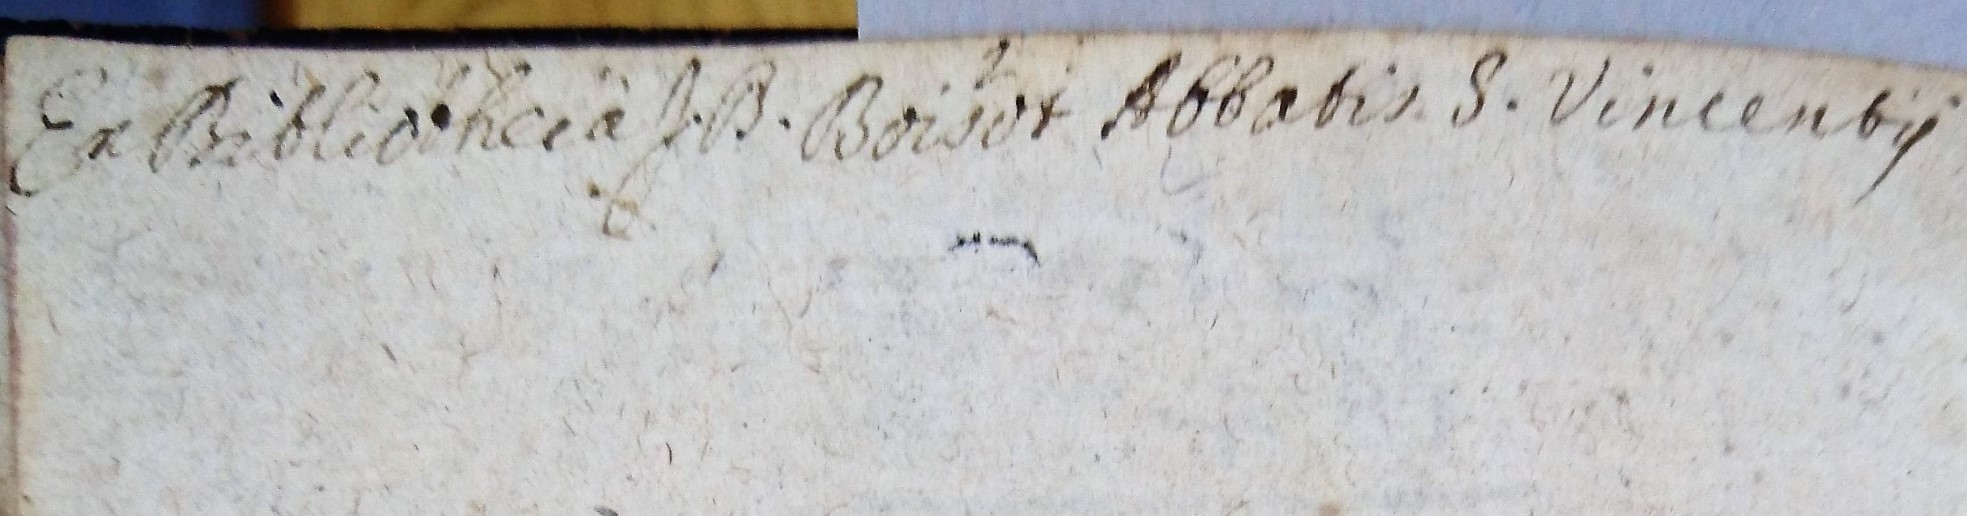 Ex Bibliotheca J. B. Boisot Abbatis S. Vincentij